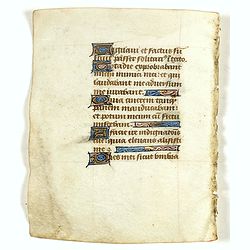 Vigilavi et factus su
cut passer solitarius i tecto
Tota die exprobrabant
michi inimici mei et qui
laudabant me adversum
me iurabant
Quia cinerem tanq
panem manducabam
et potum meum cu fletu
miscebam
A facie ire indignationis
tue quia elevans allisisti
me
Dies mei sicut umbra